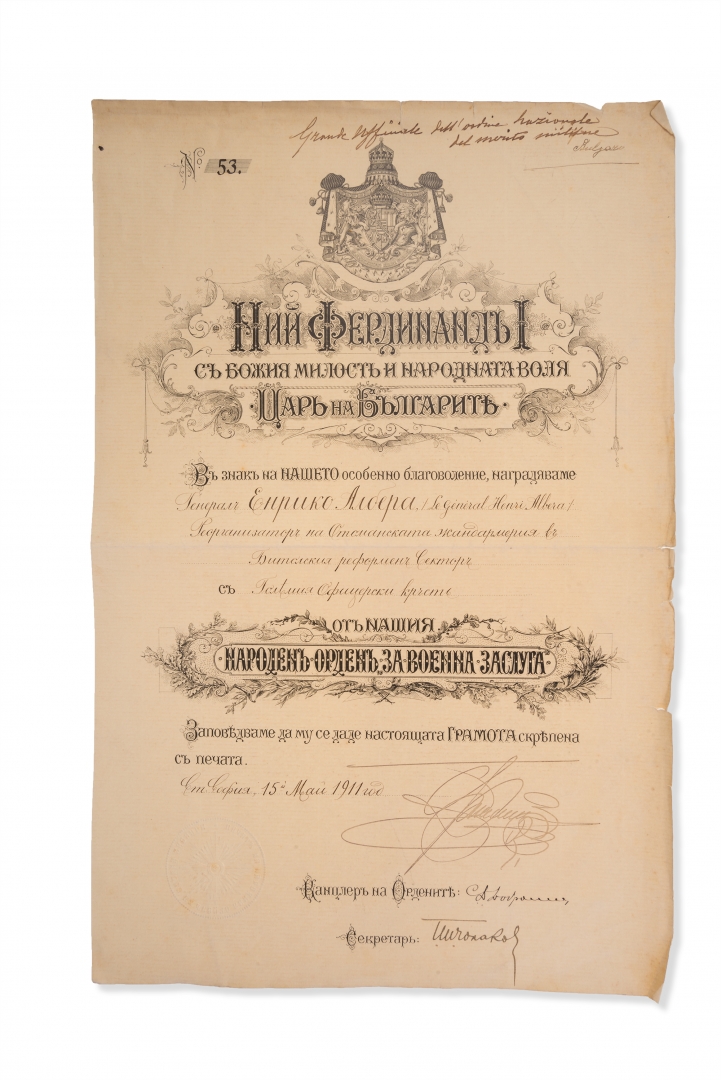 Grande Uffiziale dell'ordine nazionale
del merito militare
Bulgaro
№ 53.
Ний Фердинандъ I
съ Божия милость и народната воля
Царь на Българитѣ
Въ знакъ на НАШЕТО особенно благоволение, награждаваме
Генералъ Енрико Албера, /Le Général Henri Albera/.
Реорганизаторъ на Отоманската жандармерия въ
Битолския реформенъ Секторъ
съ Голѣмия Офицерски кръстъ
отъ НАШИЯ
НАРОДЕНЪ ОРДЕНЪ „ЗА ВОЕННА ЗАСЛУГА“
Заповѣдваме да му се даде настоящата ГРАМОТА скрѣпена
съ печата.
Ст. София, 15й Май 1911 год.
Канцлеръ на Орденитѣ:
Секретарь: